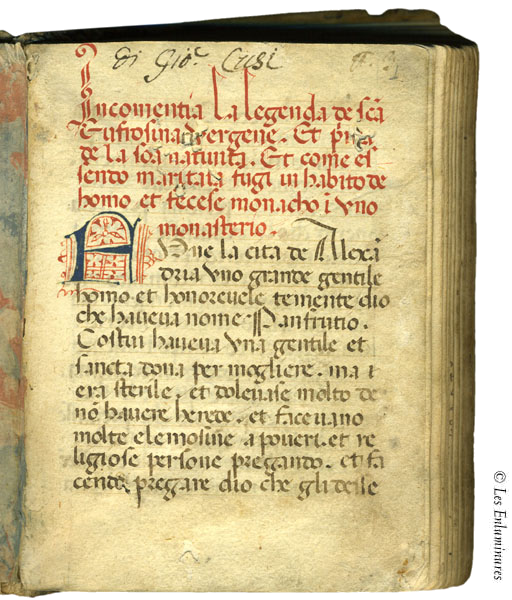 di Gio.ᶜ Cusi
Incomentia La legenda de scā
Eufrosina vergene. Et p̄ia
de la scā natiuita. Et come es
sendo maritata fugi in habito de
homo et fecese monacho ī vno
monasterio.
Fue la cita de Alexā
dria vno grande gentile
homo et honoreuele temente dio
che haueua nome Panfrutio.
Costui haueua vna gentile et
sancta dona per mogliere. ma i
era sterile. et doleuase molto de
nō hauere herede. et faceuano
molte elemosine a poueri. et re
ligiose persone pregando. et fa
cendo pregare dio che gli desse
© Les Enluminures